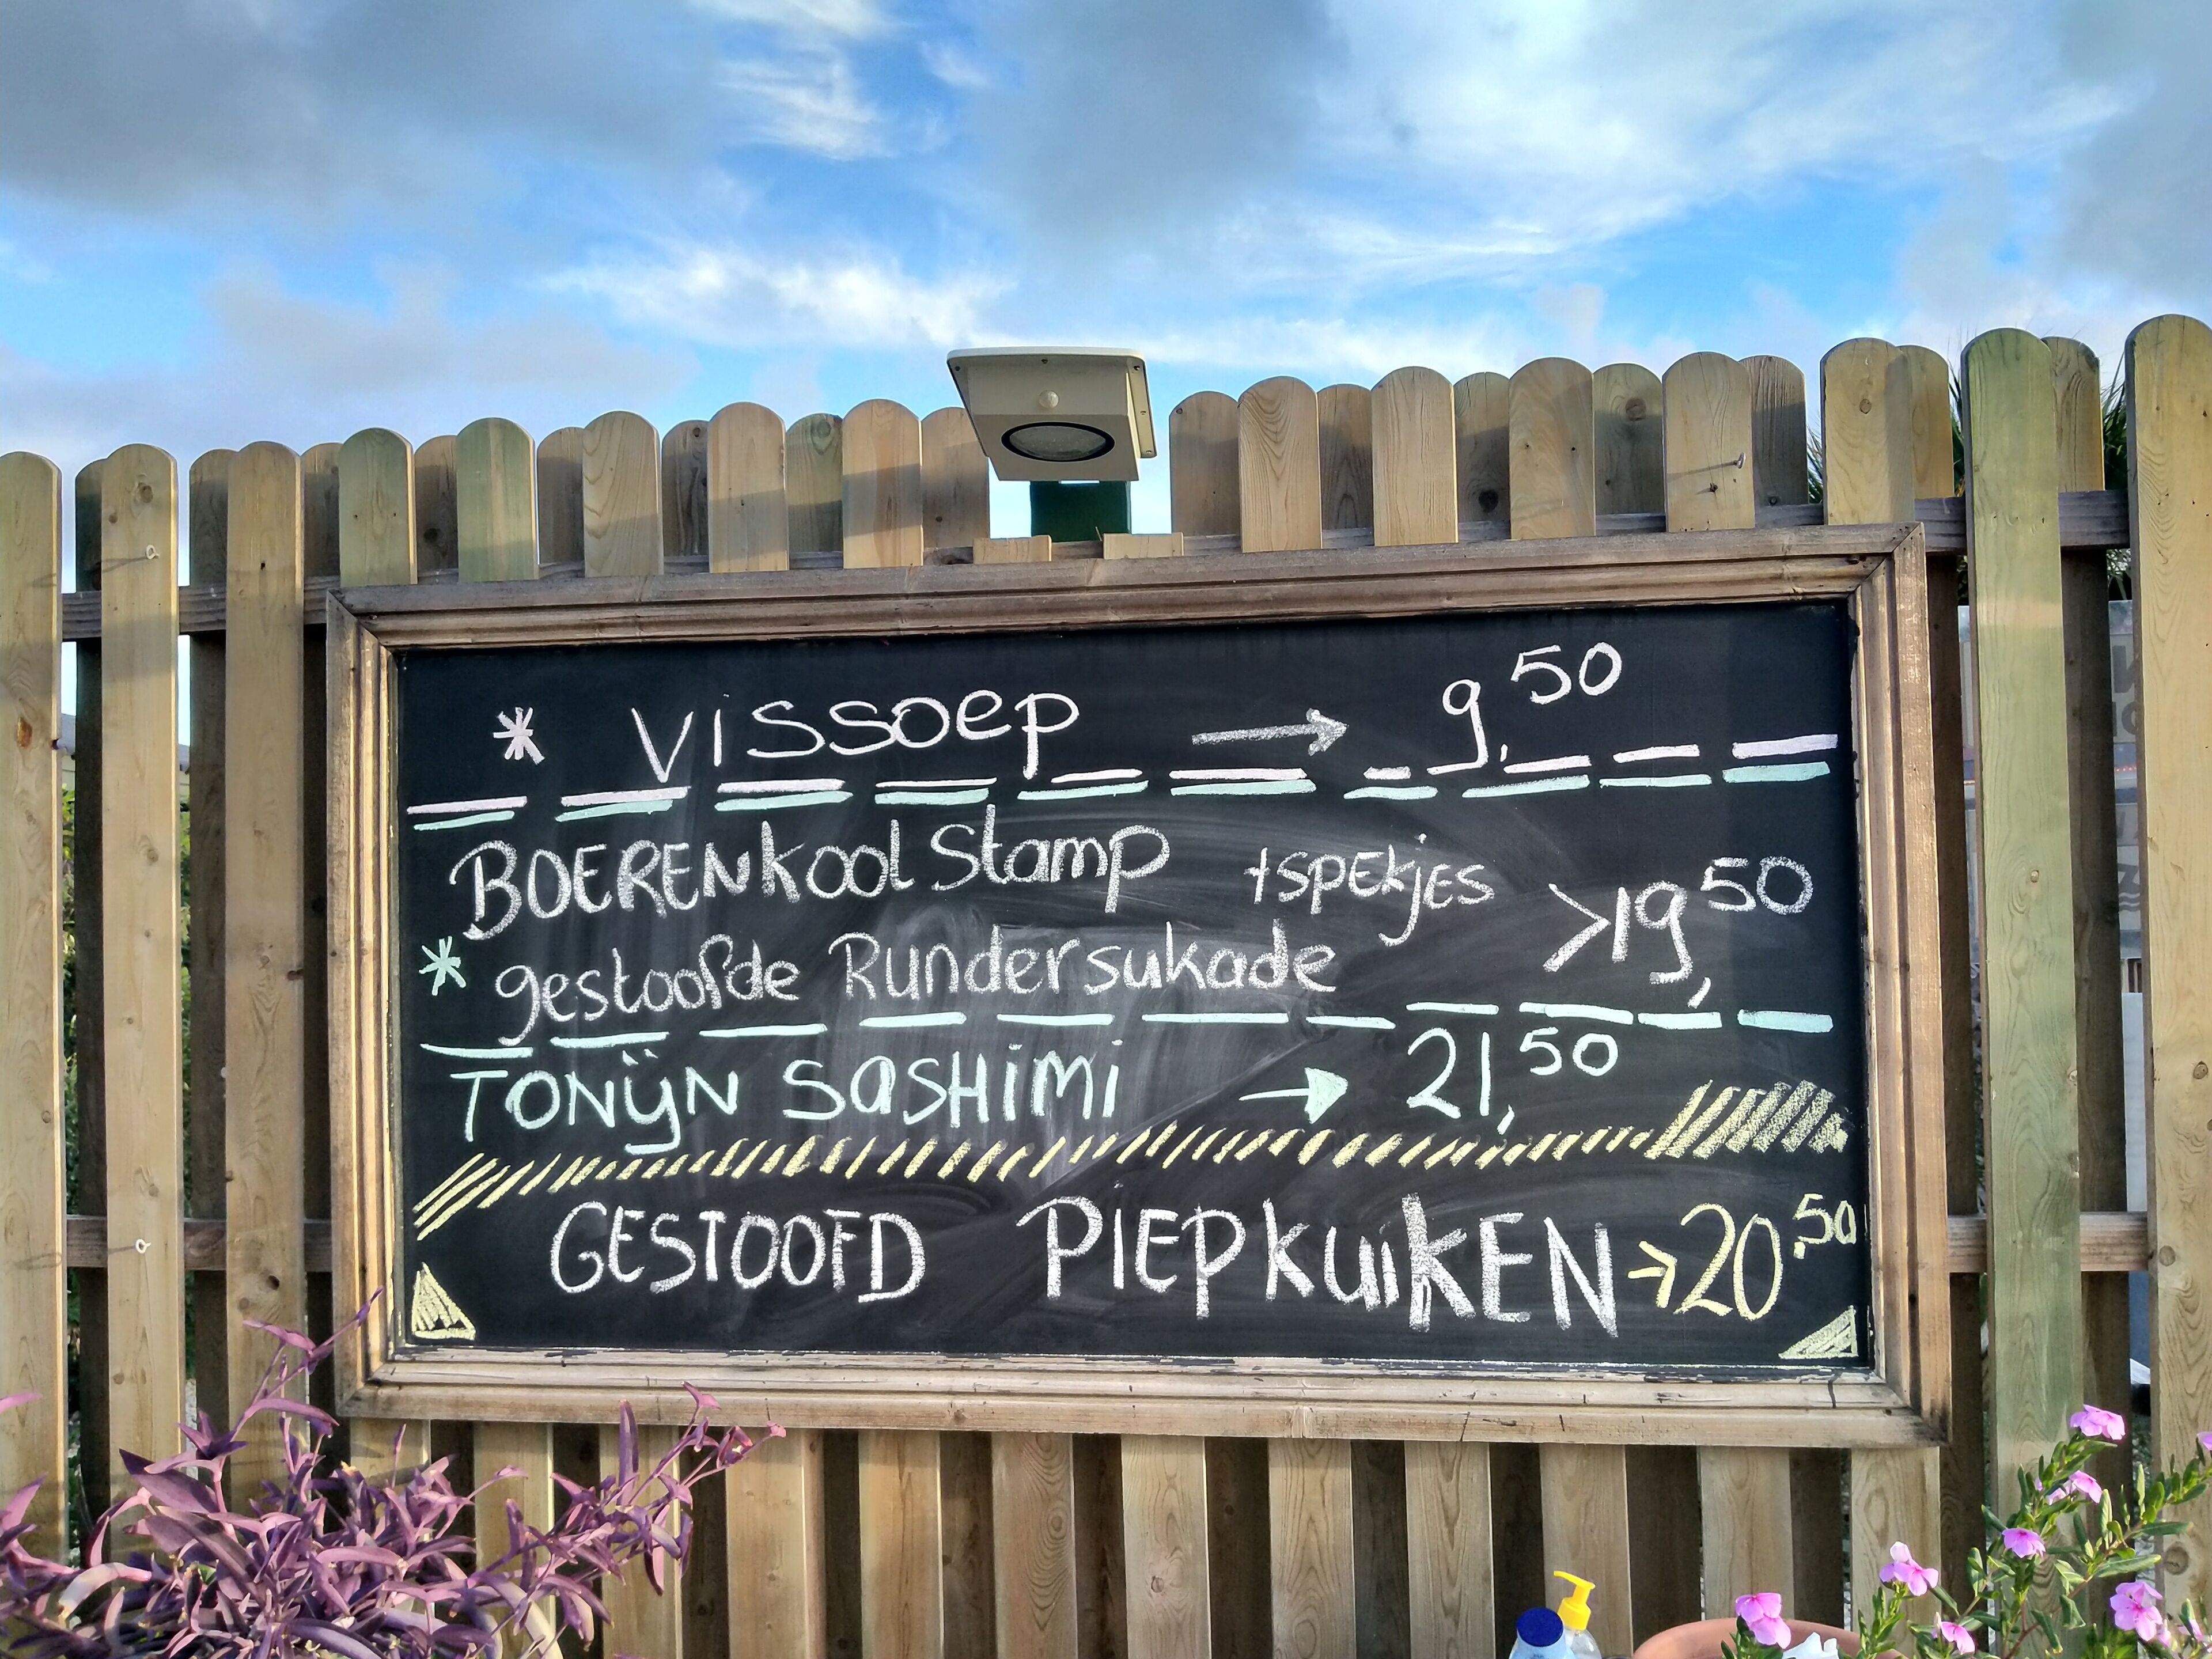 * Vissoep → 9,50
BOERENkool Stamp +SPEkjES
>19,50
* gestoofde Rundersukade
TONijN SaSHiMi → 21,50
GESTOOFD PiEPkuikEN → 20,50